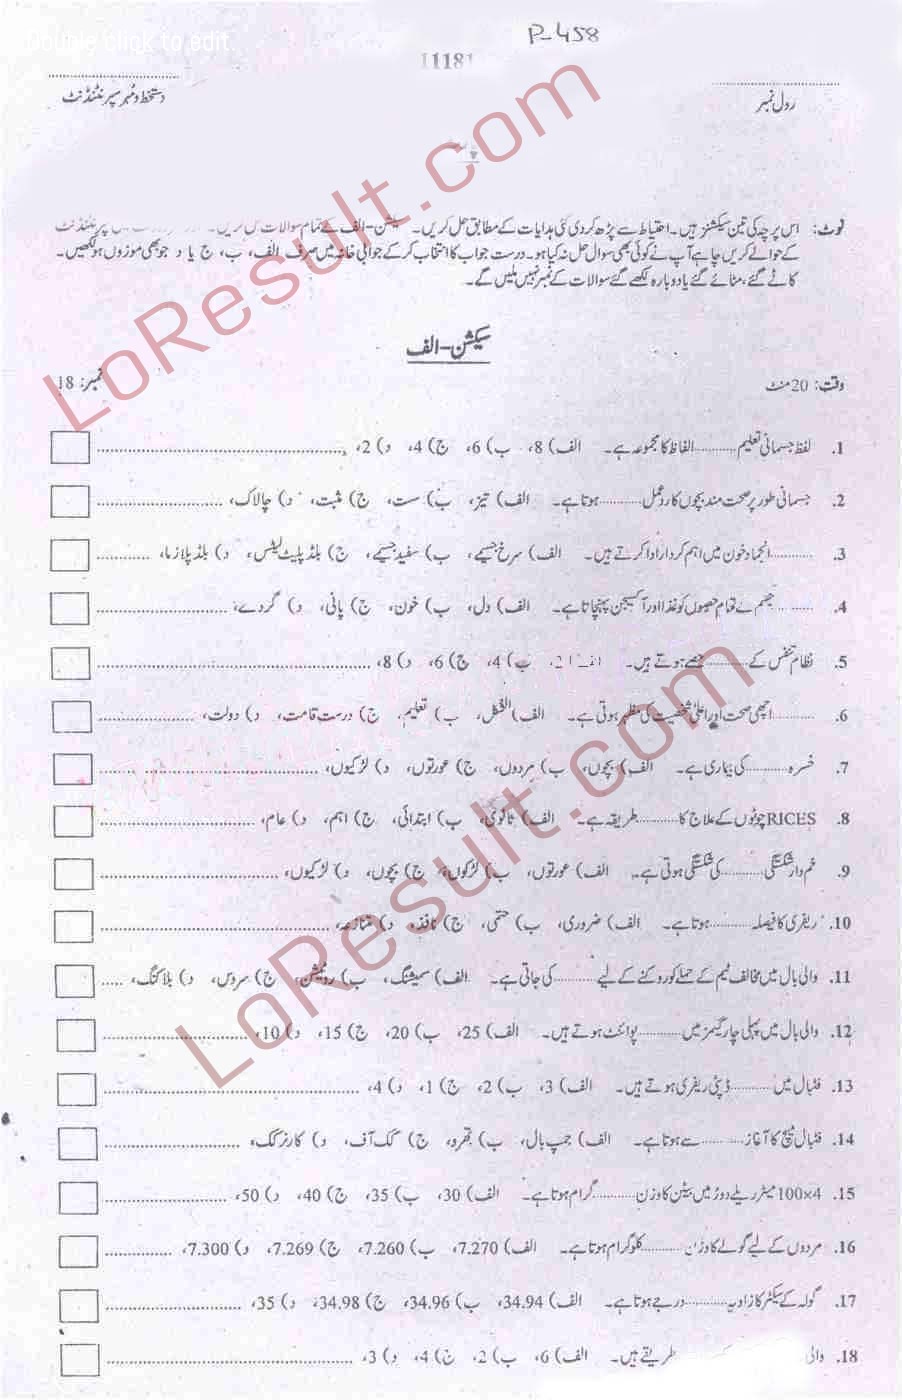 Double click to edit
P-458
11181
رول نمبر
دستخط و مہر سپرنٹنڈنٹ
نوٹ: اس پرچہ کی تین سیکشنز ہیں۔ احتیاط سے پڑھ کر دی گئی ہدایات کے مطابق حل کریں۔ سیکشن-الف کے تمام سوالات حل کریں۔ سپرنٹنڈنٹ
کے حوالے کریں چاہے آپ نے کوئی بھی سوال حل نہ کیا ہو۔ درست جواب کا انتخاب کر کے جوابی خانہ میں صرف الف، ب، ج یا د جو بھی موزوں ہو لکھیں۔
کاٹے گئے، مٹائے گئے یا دوبارہ لکھے گئے سوالات کے نمبر نہیں ملیں گے۔
سیکشن-الف
وقت: 20 منٹ
نمبر: 18
1. لفظ جسمانی تعلیم ........... الفاظ کا مجموعہ ہے۔ الف) 8، ب) 6، ج) 4، د) 2،
2. جسمانی طور پر صحت مند بچوں کا ردعمل ........... ہوتا ہے۔ الف) تیز، ب) سست، ج) مثبت، د) چالاک،
3. ........... انجماد خون میں اہم کردار ادا کرتے ہیں۔ الف) سرخ جسیمے، ب) سفید جسیمے، ج) بلڈ پلیٹ لیٹس، د) بلڈ پلازما،
4. ........... جسم کے تمام حصوں کو غذا اور آکسیجن پہنچاتا ہے۔ الف) دل، ب) خون، ج) پانی، د) گردے،
5. نظام تنفس کے ........... حصے ہوتے ہیں۔ الف) 2، ب) 4، ج) 6، د) 8،
6. ........... اچھی صحت اور اعلیٰ شخصیت کی مظہر ہوتی ہے۔ الف) شکل، ب) تعلیم، ج) درست قامت، د) دولت،
7. خسرہ ........... کی بیماری ہے۔ الف) بچوں، ب) مردوں، ج) عورتوں، د) لڑکیوں،
8. RICES چوٹوں کے علاج کا ........... طریقہ ہے۔ الف) ثانوی، ب) ابتدائی، ج) اہم، د) عام،
9. خم دار شکستگی ........... کی شکستگی ہوتی ہے۔ الف) عورتوں، ب) لڑکوں، ج) بچوں، د) لڑکیوں،
10. ریفری کا فیصلہ ........... ہوتا ہے۔ الف) ضروری، ب) حتمی، ج) نافذ، د) متنازعہ،
11. والی بال میں مخالف ٹیم کے حملے کو روکنے کے لیے ........... کی جاتی ہے۔ الف) سمیشنگ، ب) روٹیشن، ج) سروس، د) بلاکنگ،
12. والی بال میں پہلی چار گیمز میں ........... پوائنٹ ہوتے ہیں۔ الف) 25، ب) 20، ج) 15، د) 10،
13. فٹبال میں ........... ڈپٹی ریفری ہوتے ہیں۔ الف) 3، ب) 2، ج) 1، د) 4،
14. فٹبال میچ کا آغاز ........... سے ہوتا ہے۔ الف) جمپ بال، ب) تھرو، ج) کک آف، د) کارنر کک،
15. 4×100 میٹر ریلے دوڑ میں بیٹن کا وزن ........... گرام ہوتا ہے۔ الف) 30، ب) 35، ج) 40، د) 50،
16. مردوں کے لیے گولے کا وزن ........... کلوگرام ہوتا ہے۔ الف) 7.270، ب) 7.260، ج) 7.269، د) 7.300،
17. گولہ کے سیکٹر کا زاویہ ........... درجے ہوتا ہے۔ الف) 34.94، ب) 34.96، ج) 34.98، د) 35،
18. والی طریقے ہیں۔ الف) 6، ب) 2، ج) 4، د) 3،
LoResult.com
LoResult.com